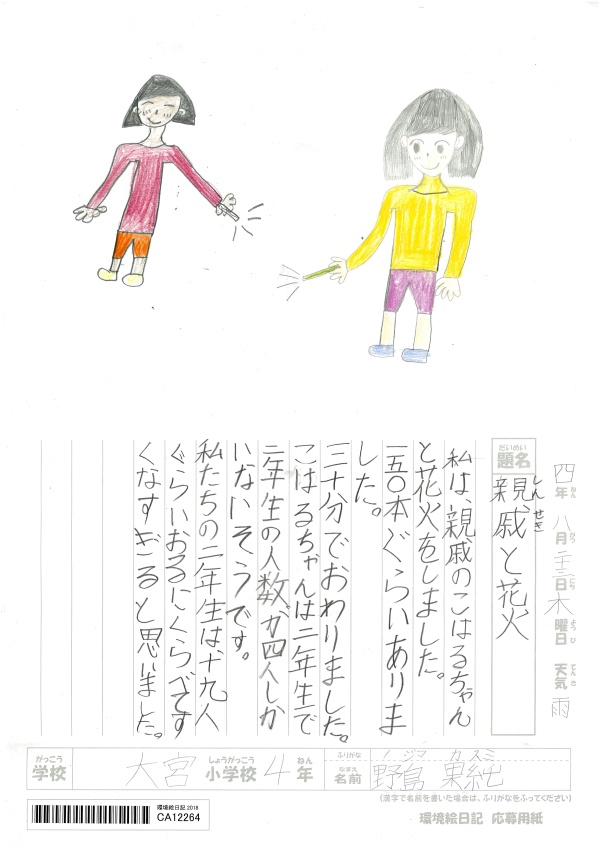 四年八月二十三日木曜日 天気 雨
ねん がつ にち ようび てんき
だいめい
題名
しんせき
親戚と花火
私は、親戚のこはるちゃん
と花火をしました。
一五〇本ぐらいありま
した。
三十分でおわりました。
こはるちゃんは二年生で
二年生の人数が四人しか
いないそうです。
私たちの二年生は十九人
ぐらいおるにくらべてす
くなすぎると思いました。
がっこう しょうがっこう ねん
学校 大宮小学校 4年
ふりがな ノジマ カスミ
なまえ
名前 野島 果純
(漢字で名前を書いた場合は、ふりがなをふってください)
環境絵日記 2018
CA12264
環境絵日記 応募用紙